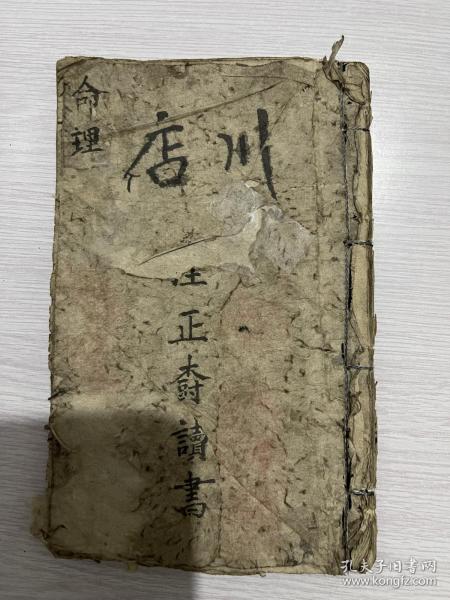 命理
川店
正壽讀書
孔夫子旧书网
www.kongfz.com